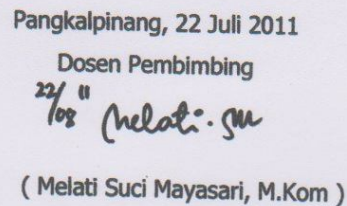 Pangkalpinang, 22 Juli 2011
Dosen Pembimbing
22/08 11 Melati. SM
( Melati Suci Mayasari, M.Kom )